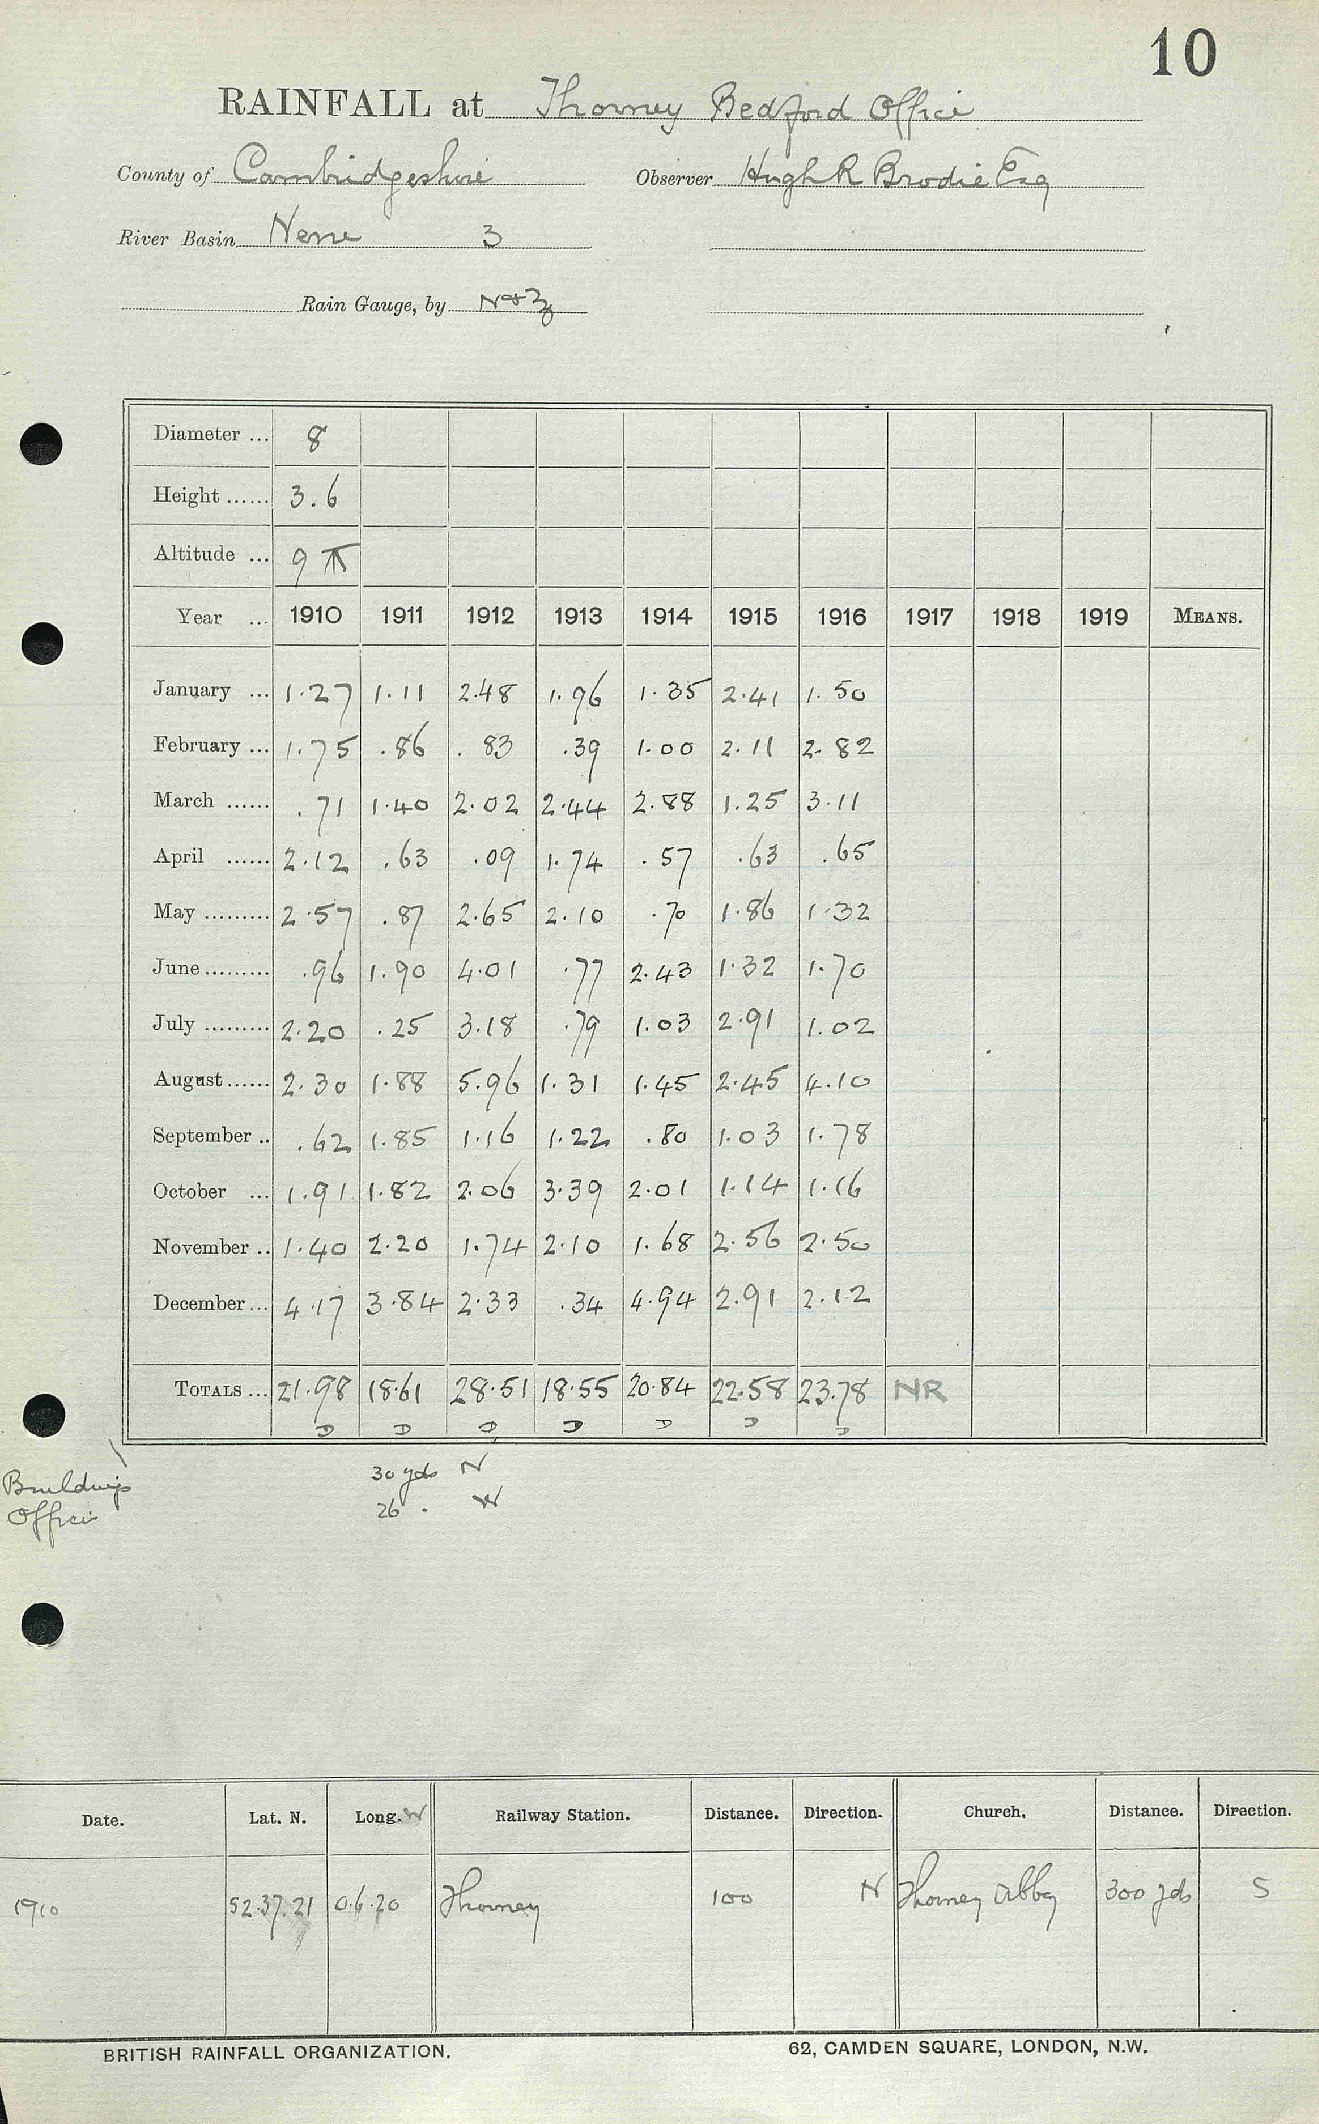 10
RAINFALL at Thorney Bedford Office
County of Cambridgeshire Observer Hugh R Brodie Esq
River Basin Nene 3
Rain Gauge, by N&Z
Diameter ... 8
Height ...... 3.6
Altitude ... 9
Year ... 1910 1911 1912 1913 1914 1915 1916 1917 1918 1919 MEANS.
January ... 1.27 1.11 2.48 1.96 1.35 2.41 1.50
February ... 1.75 .86 .83 .39 1.00 2.11 2.82
March ...... .71 1.40 2.02 2.44 2.88 1.25 3.11
April ...... 2.12 .63 .09 1.74 .57 .63 .65
May ......... 2.57 .87 2.65 2.10 .70 1.86 1.32
June ......... .96 1.90 4.01 .77 2.43 1.32 1.70
July ......... 2.20 .25 3.18 .79 1.03 2.91 1.02
August ...... 2.30 1.88 5.96 1.31 1.45 2.45 4.10
September .. .62 1.85 1.16 1.22 .80 1.03 1.78
October ... 1.91 1.82 2.06 3.39 2.01 1.14 1.16
November .. 1.40 2.20 1.74 2.10 1.68 2.56 2.50
December ... 4.17 3.84 2.33 .34 4.94 2.91 2.12
TOTALS ... 21.98 18.61 28.51 18.55 20.84 22.58 23.78 NR
D D D D D D D
Buildings
Office
30 yds N
26 . W
Date. Lat. N. Long. W Railway Station. Distance. Direction. Church. Distance. Direction.
1910 52.37.21 0.6.20 Thorney 100 N Thorney Abbey 300 yds S
BRITISH RAINFALL ORGANIZATION. 62, CAMDEN SQUARE, LONDON, N.W.